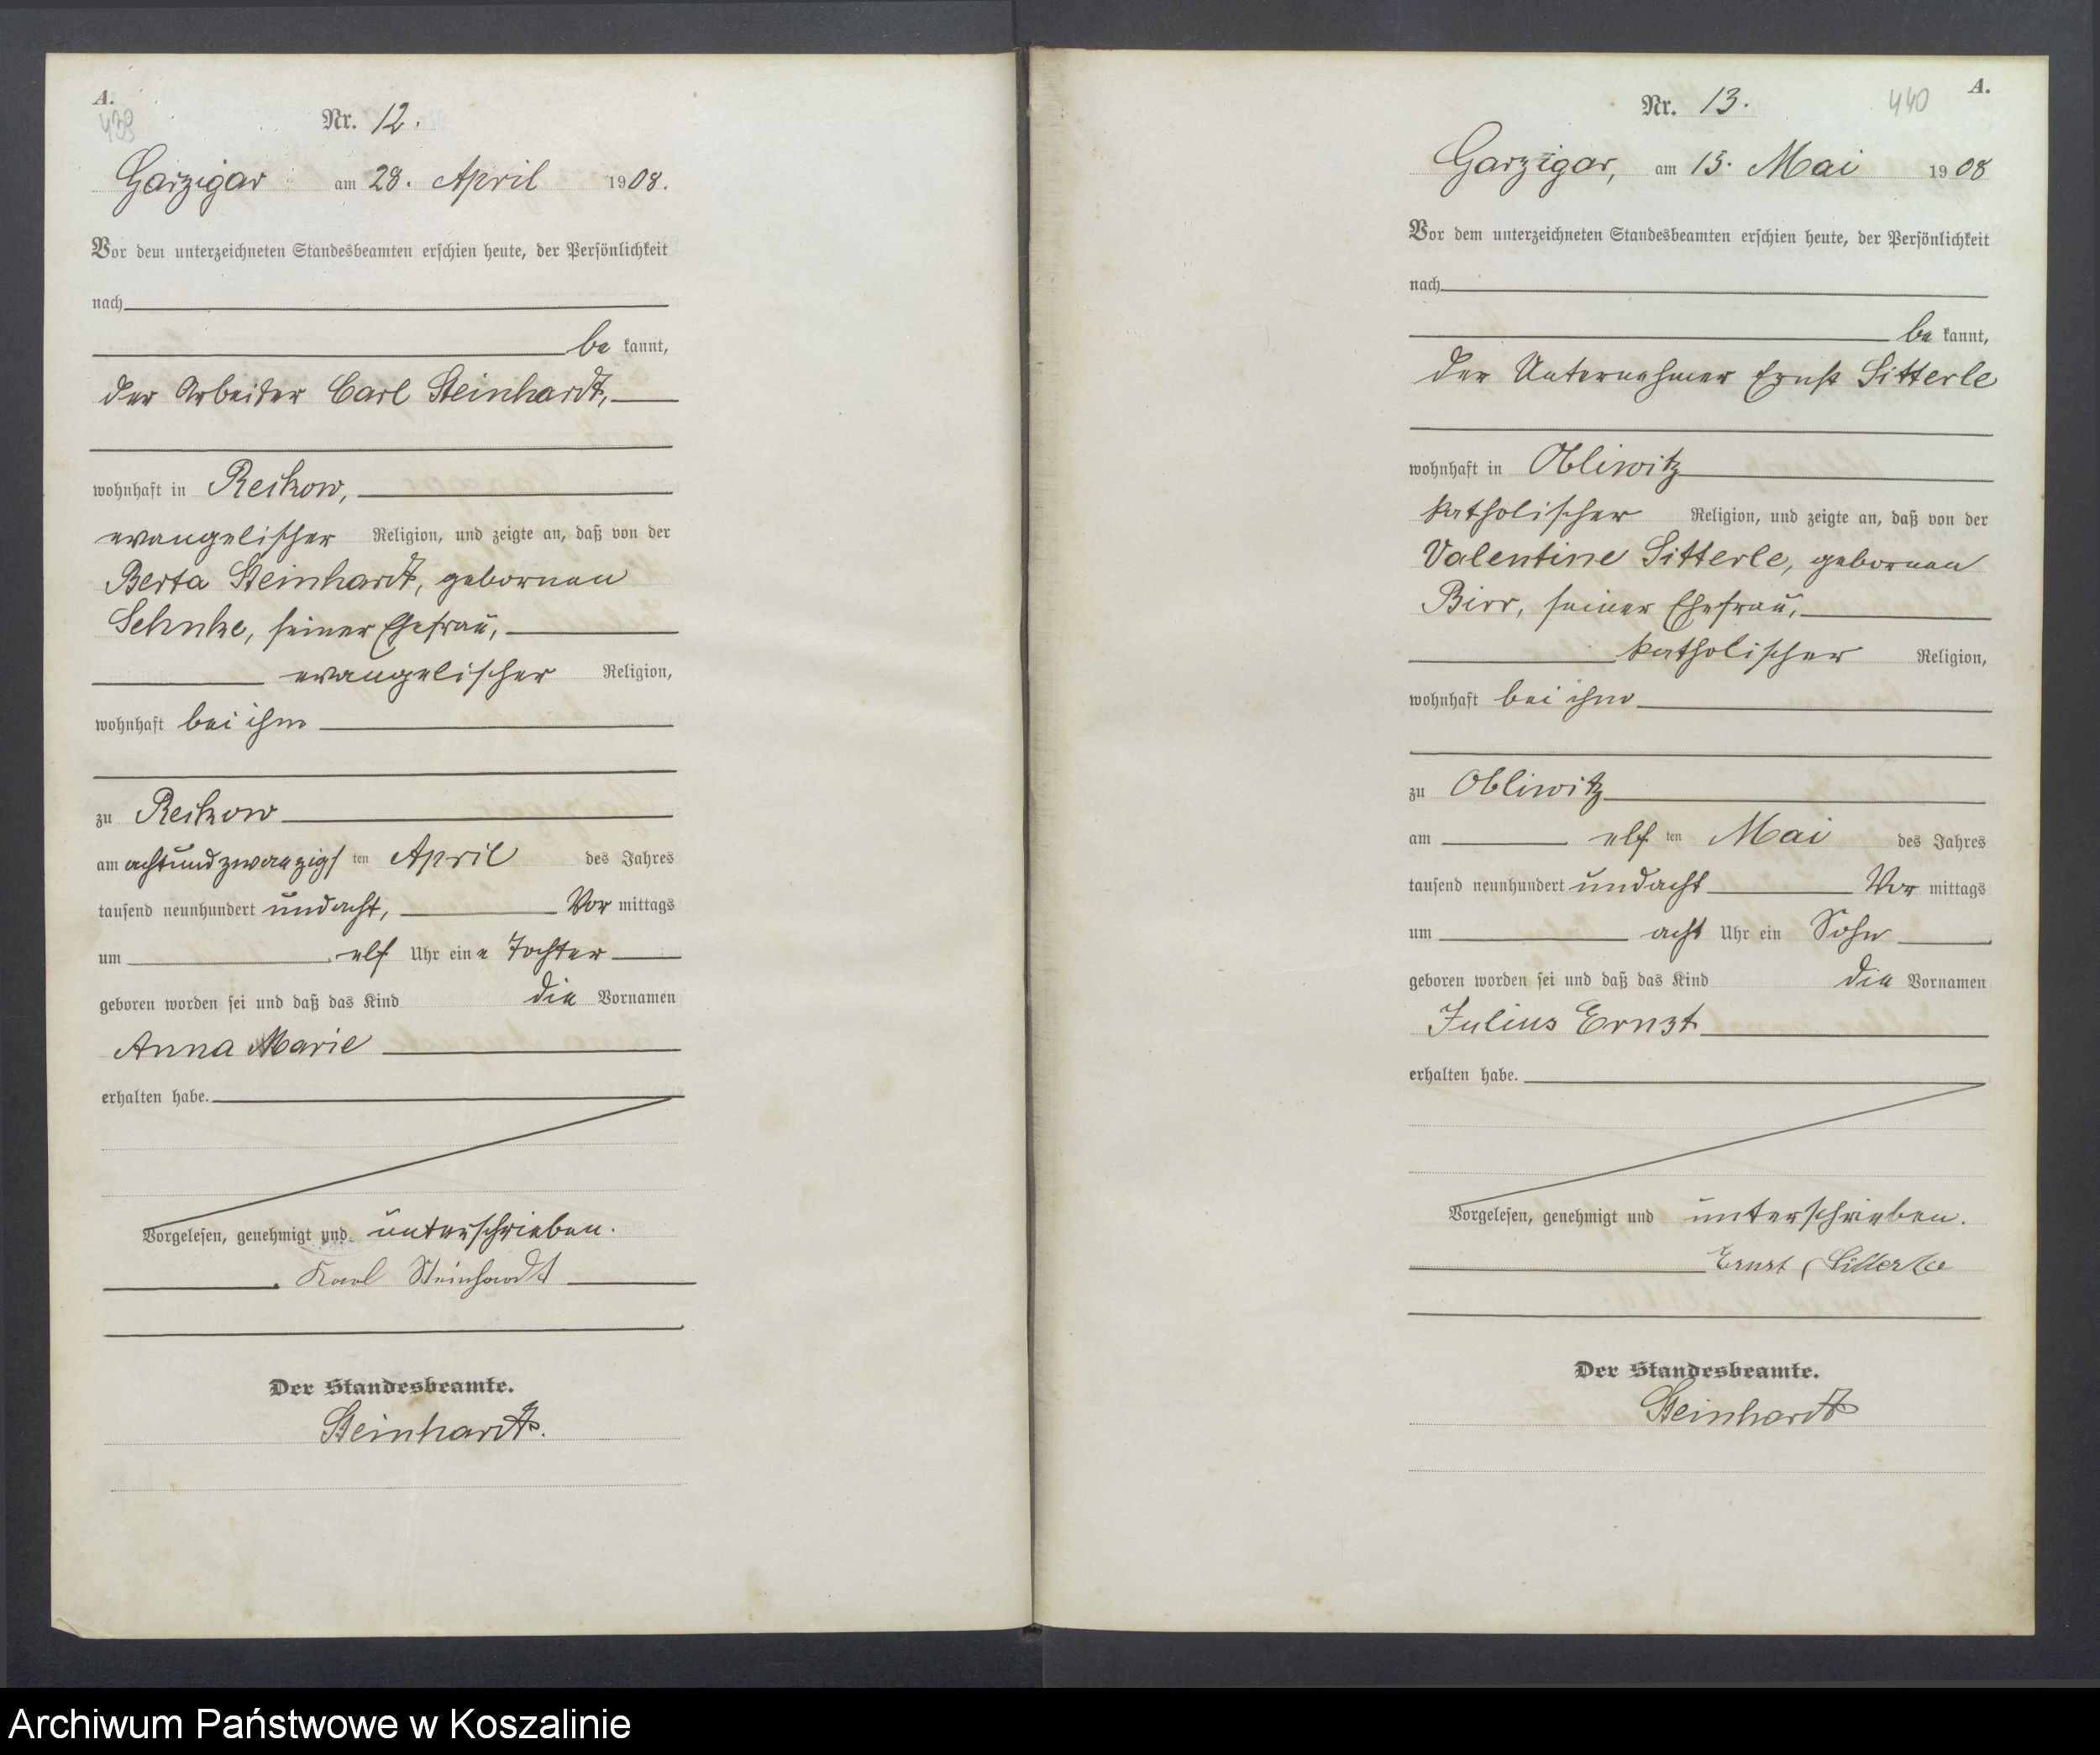 A.
439
Nr. 12.
Garzigar am 28. April 1908.
Vor dem unterzeichneten Standesbeamten erschien heute, der Persönlichkeit
nach
be kannt,
der Arbeiter Carl Steinhardt,
wohnhaft in Reckow,
evangelischer Religion, und zeigte an, daß von der
Berta Steinhardt, geborenen
seiner Ehefrau,
evangelischer Religion,
wohnhaft bei ihm
zu Reckow
am achtundzwanzigsten April des Jahres
tausend neunhundert undacht, Vor mittags
um elf Uhr eine Tochter
geboren worden sei und daß das Kind die Vornamen
Anna Marie
erhalten habe.
Vorgelesen, genehmigt und unterschrieben.
Karl Steinhardt
Der Standesbeamte.
Steinhardt.
A.
440
Nr. 13.
Garzigar, am 15. Mai 1908
Vor dem unterzeichneten Standesbeamten erschien heute, der Persönlichkeit
nach
be kannt,
der Unternehmer Ernst Sitterle
wohnhaft in Obliwitz
katholischer Religion, und zeigte an, daß von der
Valentine Sitterle, geborenen
Birr, seiner Ehefrau,
katholischer Religion,
wohnhaft bei ihm
zu Obliwitz
am elf ten Mai des Jahres
tausend neunhundert undacht Vor mittags
um acht Uhr ein Sohn
geboren worden sei und daß das Kind die Vornamen
Julius Ernst
erhalten habe.
Vorgelesen, genehmigt und unterschrieben.
Ernst Sitterle
Der Standesbeamte.
Steinhardt
Archiwum Państwowe w Koszalinie